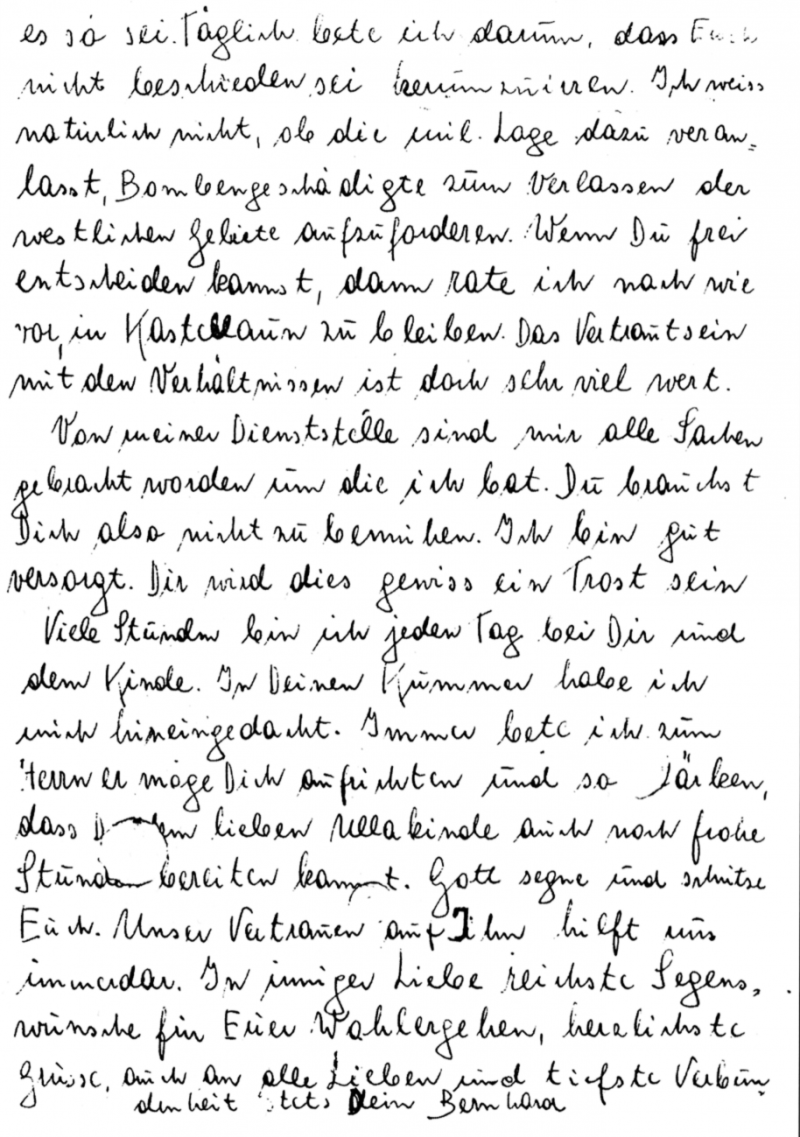 es so sei. Täglich bete ich darum, dass Euch
nicht beschieden sei herumzuirren. Ich weiss
natürlich nicht, ob die mil. Lage dazu veran-
lasst, Bombengeschädigte zum Verlassen der
westlichen Gebiete aufzuforderen. Wenn Du frei
entscheiden kannst, dann rate ich nach wie
vor, in Kastellaun zu bleiben. Das Vertrautsein
mit den Verhältnissen ist doch sehr viel wert.
Von meiner Dienststelle sind mir alle Sachen
gebracht worden um die ich bat. Du brauchst
Dich also nicht zu bemühen. Ich bin gut
versorgt. Dir wird dies gewiss ein Trost sein
Viele Stunden bin ich jeden Tag bei Dir und
dem Kinde. In Deinen Kummer habe ich
mich hineingedacht. Immer bete ich zum
Herrn er möge Dich aufrichten und so stärken,
dass Du dem lieben Ullakinde auch noch frohe
Stunden bereiten kannst. Gott segne und schütze
Euch. Unser Vertrauen auf Ihn hilft uns
immerdar. In inniger Liebe reichste Segens-
wünsche für Euer Wohlergehen, herzlichste
Grüsse, auch an alle Lieben und tiefste Verbun-
denheit stets Dein Bernhard